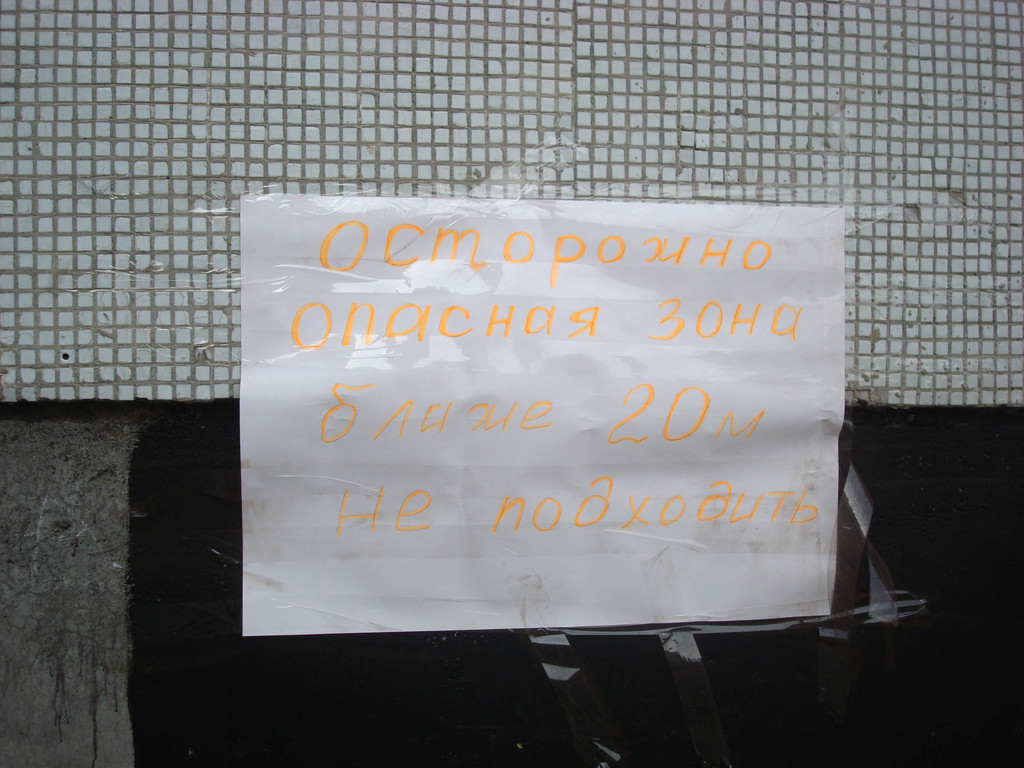 Осторожно
опасная зона
ближе 20м
не подходить